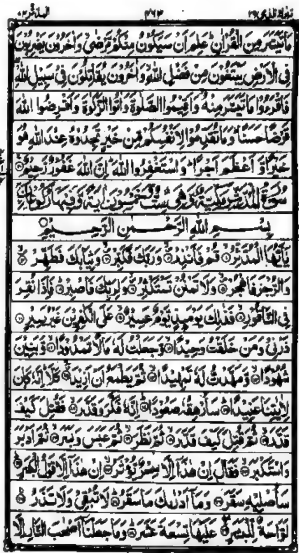 مَا تَيَسَّرَ مِنَ الْقُرْاٰنِ ؕ عَلِمَ اَنْ سَيَكُوْنُ مِنْكُمْ مَّرْضٰى ۙ وَاٰخَرُوْنَ يَضْرِبُوْنَ
فِى الْاَرْضِ يَبْتَغُوْنَ مِنْ فَضْلِ اللّٰهِ ۙ وَاٰخَرُوْنَ يُقَاتِلُوْنَ فِىْ سَبِيْلِ اللّٰهِ
فَاقْرَءُوْا مَا تَيَسَّرَ مِنْهُ ۙ وَاَقِيْمُوا الصَّلٰوةَ وَاٰتُوا الزَّكٰوةَ وَاَقْرِضُوا اللّٰهَ
قَرْضًا حَسَنًا ؕ وَمَا تُقَدِّمُوْا لِاَنْفُسِكُمْ مِّنْ خَيْرٍ تَجِدُوْهُ عِنْدَ اللّٰهِ هُوَ
خَيْرًا وَّاَعْظَمَ اَجْرًا ؕ وَاسْتَغْفِرُوا اللّٰهَ ؕ اِنَّ اللّٰهَ غَفُوْرٌ رَّحِيْمٌ
سُوْرَةُ الْمُدَّثِّرِ مَكِّيَّةٌ وَّهِىَ سِتٌّ وَّخَمْسُوْنَ اٰيَةً وَّفِيْهَا رُكُوْعَانِ
بِسْمِ اللّٰهِ الرَّحْمٰنِ الرَّحِيْمِ
يٰۤاَيُّهَا الْمُدَّثِّرُ ۙ قُمْ فَاَنْذِرْ ۙ وَرَبَّكَ فَكَبِّرْ ۙ وَثِيَابَكَ فَطَهِّرْ
وَالرُّجْزَ فَاهْجُرْ ۙ وَلَا تَمْنُنْ تَسْتَكْثِرُ ۙ وَلِرَبِّكَ فَاصْبِرْ ؕ فَاِذَا نُقِرَ
فِى النَّاقُوْرِ ۙ فَذٰلِكَ يَوْمَئِذٍ يَّوْمٌ عَسِيْرٌ ۙ عَلَى الْكٰفِرِيْنَ غَيْرُ يَسِيْرٍ
ذَرْنِىْ وَمَنْ خَلَقْتُ وَحِيْدًا ۙ وَّجَعَلْتُ لَهٗ مَالًا مَّمْدُوْدًا ۙ وَّبَنِيْنَ
شُهُوْدًا ۙ وَّمَهَّدْتُّ لَهٗ تَمْهِيْدًا ۙ ثُمَّ يَطْمَعُ اَنْ اَزِيْدَ ۙ كَلَّا ؕ اِنَّهٗ كَانَ
لِاٰيٰتِنَا عَنِيْدًا ؕ سَاُرْهِقُهٗ صَعُوْدًا ؕ اِنَّهٗ فَكَّرَ وَقَدَّرَ ۙ فَقُتِلَ كَيْفَ
قَدَّرَ ۙ ثُمَّ قُتِلَ كَيْفَ قَدَّرَ ۙ ثُمَّ نَظَرَ ۙ ثُمَّ عَبَسَ وَبَسَرَ ۙ ثُمَّ اَدْبَرَ
وَاسْتَكْبَرَ ۙ فَقَالَ اِنْ هٰذَاۤ اِلَّا سِحْرٌ يُّؤْثَرُ ۙ اِنْ هٰذَاۤ اِلَّا قَوْلُ الْبَشَرِ
سَاُصْلِيْهِ سَقَرَ ۙ وَمَاۤ اَدْرٰىكَ مَا سَقَرُ ؕ لَا تُبْقِىْ وَلَا تَذَرُ
لَوَّاحَةٌ لِّلْبَشَرِ ۙ عَلَيْهَا تِسْعَةَ عَشَرَ ؕ وَمَا جَعَلْنَاۤ اَصْحٰبَ النَّارِ اِلَّا